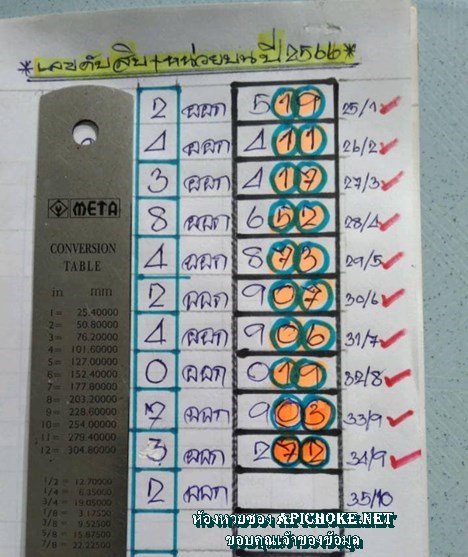 *เลขดับสิบ+หน่วยบน ปี 2566*
2 ออก 519 25/1
4 ออก 411 26/2
3 ออก 417 27/3
8 ออก 652 28/4
4 ออก 873 29/5
2 ออก 907 30/6
4 ออก 906 31/7
0 ออก 019 32/8
7 ออก 903 33/9
3 ออก 272 34/9
2 ออก 35/10
META
CONVERSION
TABLE
in mm
1= 25.40000
2= 50.80000
3= 76.20000
4= 101.60000
5= 127.00000
6= 152.40000
7= 177.80000
8= 203.20000
9= 228.60000
10= 254.00000
11= 279.40000
12= 304.80000
1/2= 12.70000
1/4= 6.35000
3/4= 19.05000
1/8= 3.17500
3/8= 9.52500
5/8= 15.87500
7/8= 22.22500
ห้องหวยซอง APICHOKE.NET
ขอบคุณเจ้าของข้อมูล